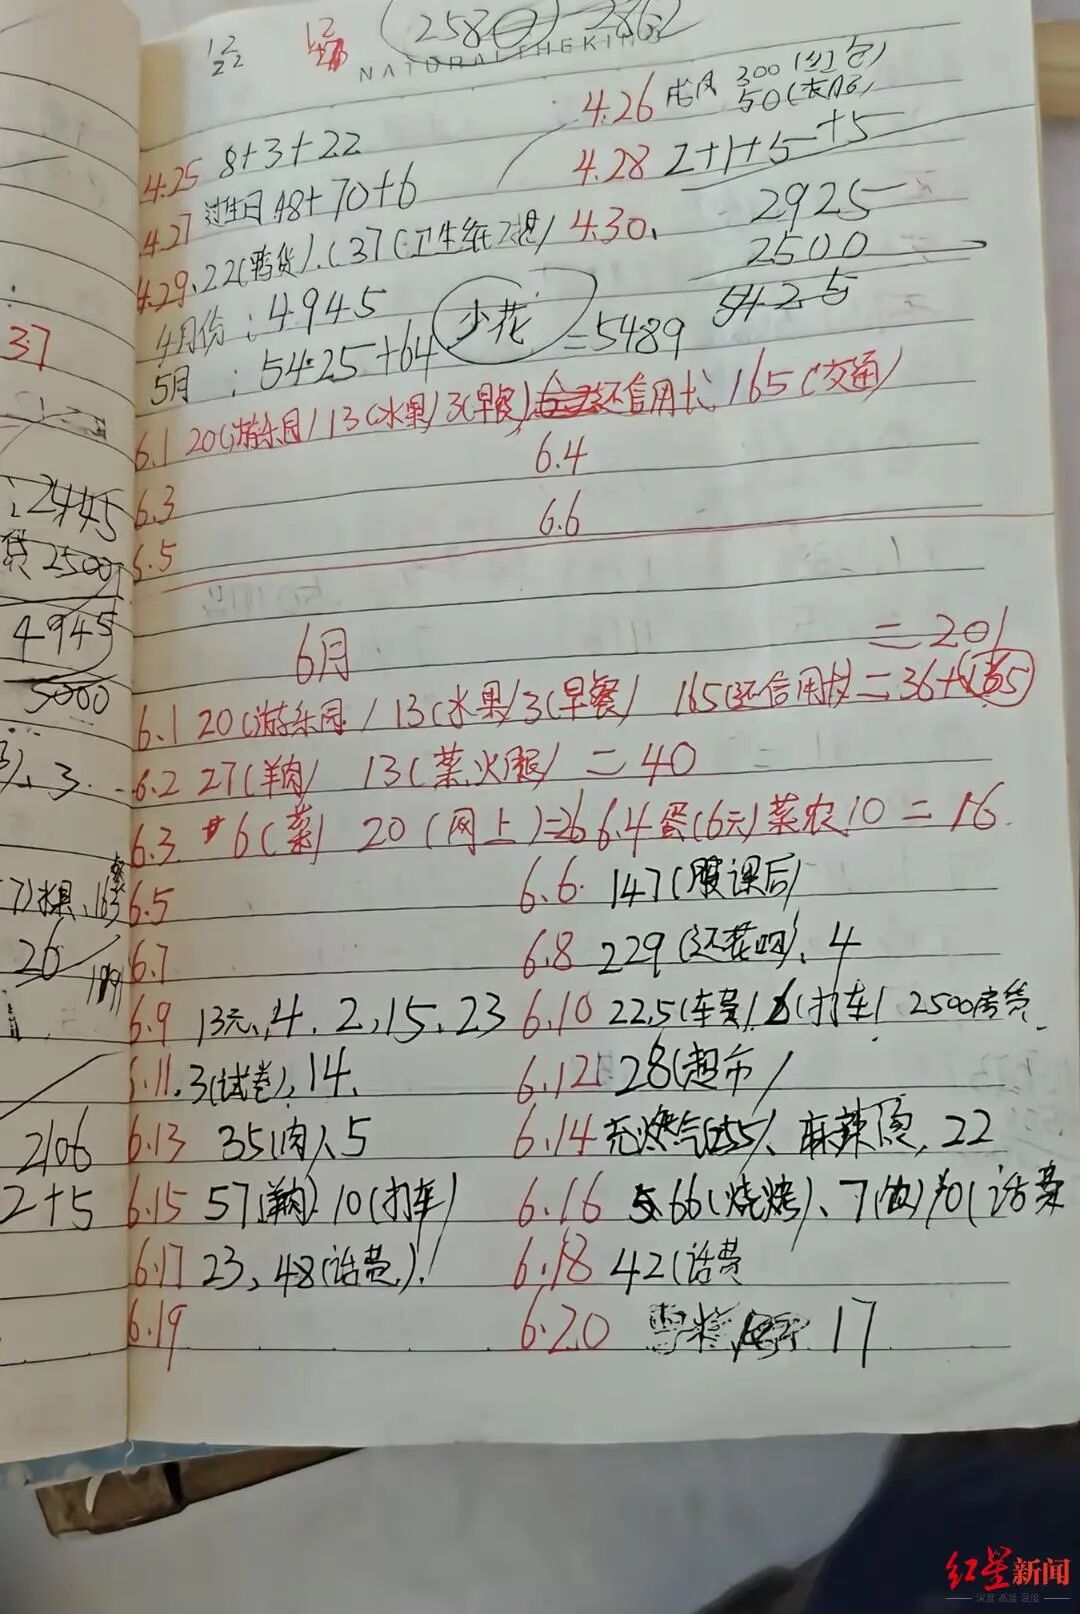 NATURAL THE KING
4.26 300(红包)
4.25 8+3+22 50(衣服)
4.27 过生日 48+70+6 4.28 2+1+5+5
4.29. 22(鸭货). 37(卫生纸2提) 4.30. 2925
4月份: 4945 2500
5月: 5425+64 少花 =5489 5425
6.1 20(游乐园) 13(水果) 3(早餐) 还信用卡 165(交通)
6.3 6.4
6.5 6.6
6月 =201
6.1 20(游乐园) 13(水果) 3(早餐) 165(还信用卡)=36+165
6.2 27(羊肉) 13(菜火腿)=40
6.3 6(菜) 20(网上)=26 6.4 蛋(6元) 菜农10=16
6.5 6.6. 147(课后)
6.7 6.8 229(还花呗), 4
6.9 13元, 4, 2, 15, 23 6.10 22.5(车费) 6(打车) 2500房贷
6.11. 3(试卷), 14. 6.12 28(超市)
6.13 35(肉), 5 6.14 充燃气(55), 麻辣烫, 22
6.15 57(羊肉) 10(打车) 6.16 66(烧烤), 7(饮) 10(话费
6.17 23, 48(话费) 6.18 42(话费
6.19 6.20 17
3.7
2445
贷2500
4945
5000
水果, 163
26
2106
2+5
红星新闻
深度 态度 温度